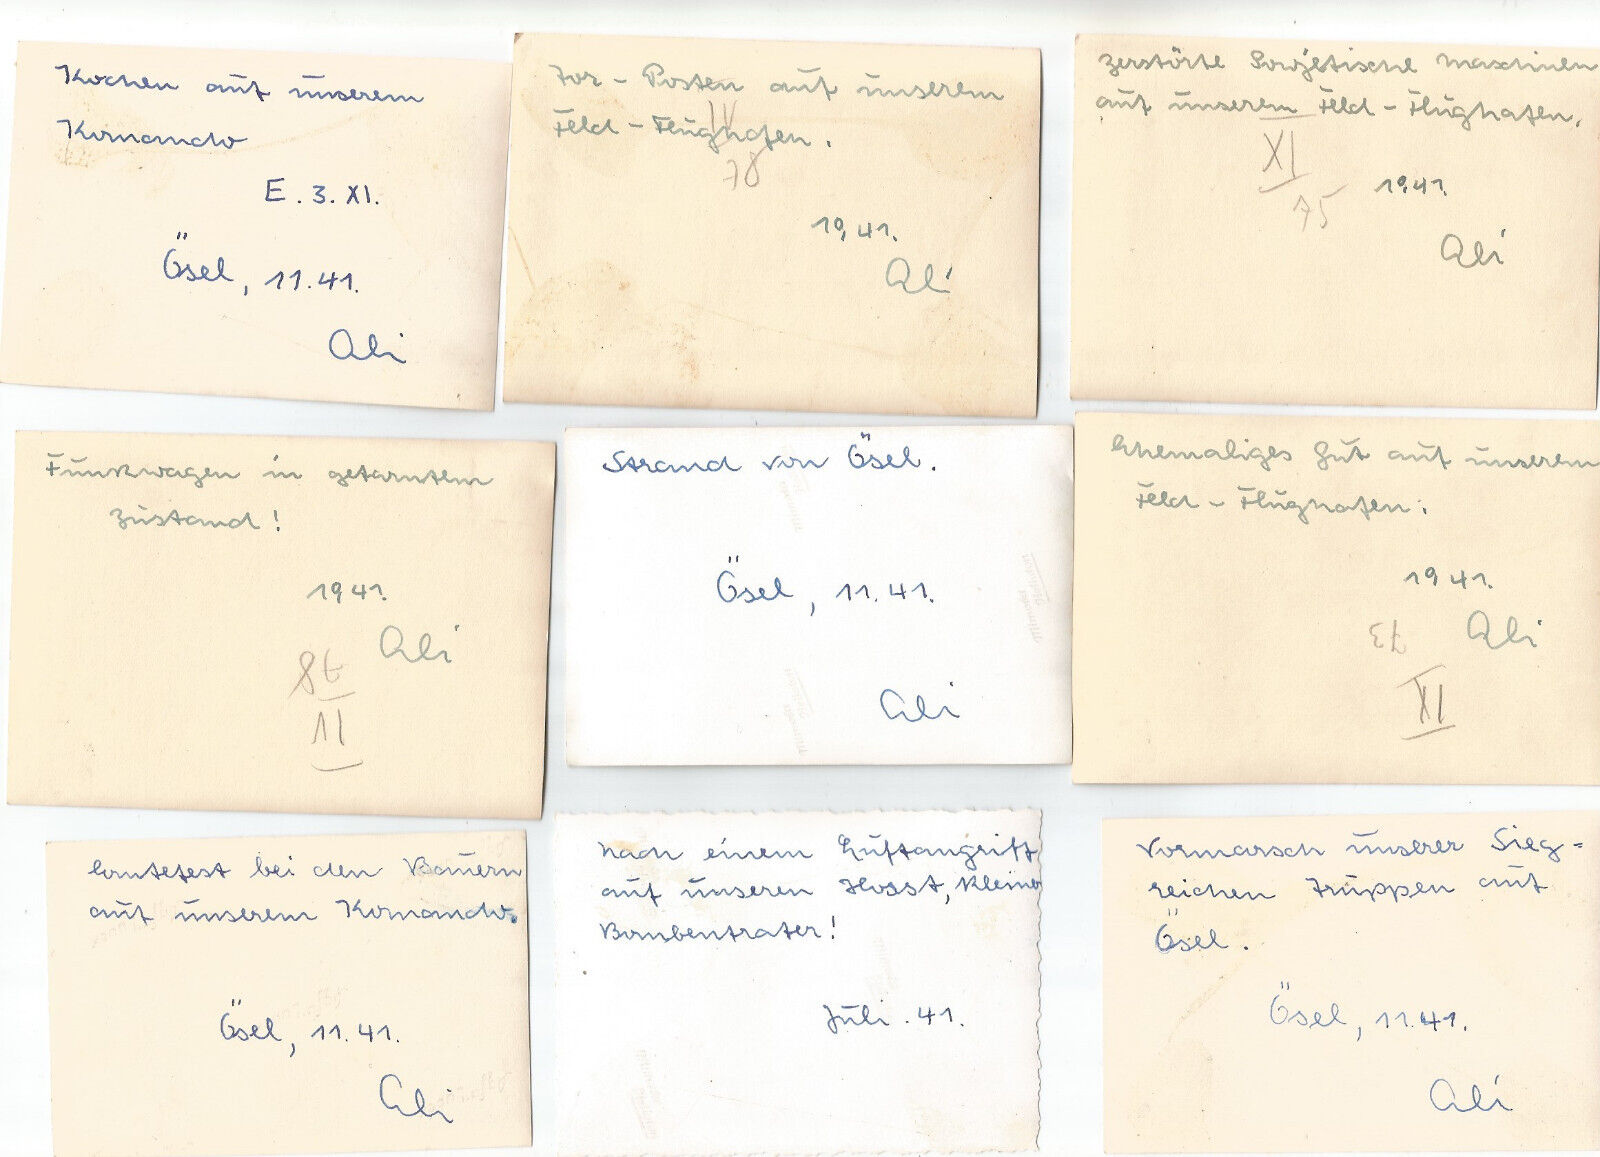 Kochen auf unserem
Komando
E. 3. XI.
Ösel, 11.41.
Ali
Tor - Posten auf unserem
Feld - Flughafen.
IV
78
1941.
Ali
Zerstörte Sowjetische Maschinen
auf unserem Feld - Flughafen.
XI
75
1941.
Ali
Funkwagen in getarntem
Zustand!
1941.
Ali
78
Strand von Ösel.
Ösel, 11.41.
Ali
Ehemaliges Gut auf unserem
Feld - Flughafen.
1941.
Ali
73
XI
Erntefest bei den Bauern
auf unserem Komando.
Ösel, 11.41.
Ali
Nach einem Luftangriff
auf unseren Horst, kleine
Bombentrater!
Juli. 41.
Vormarsch unserer Sieg=
reichen Truppen auf
Ösel.
Ösel, 11.41.
Ali